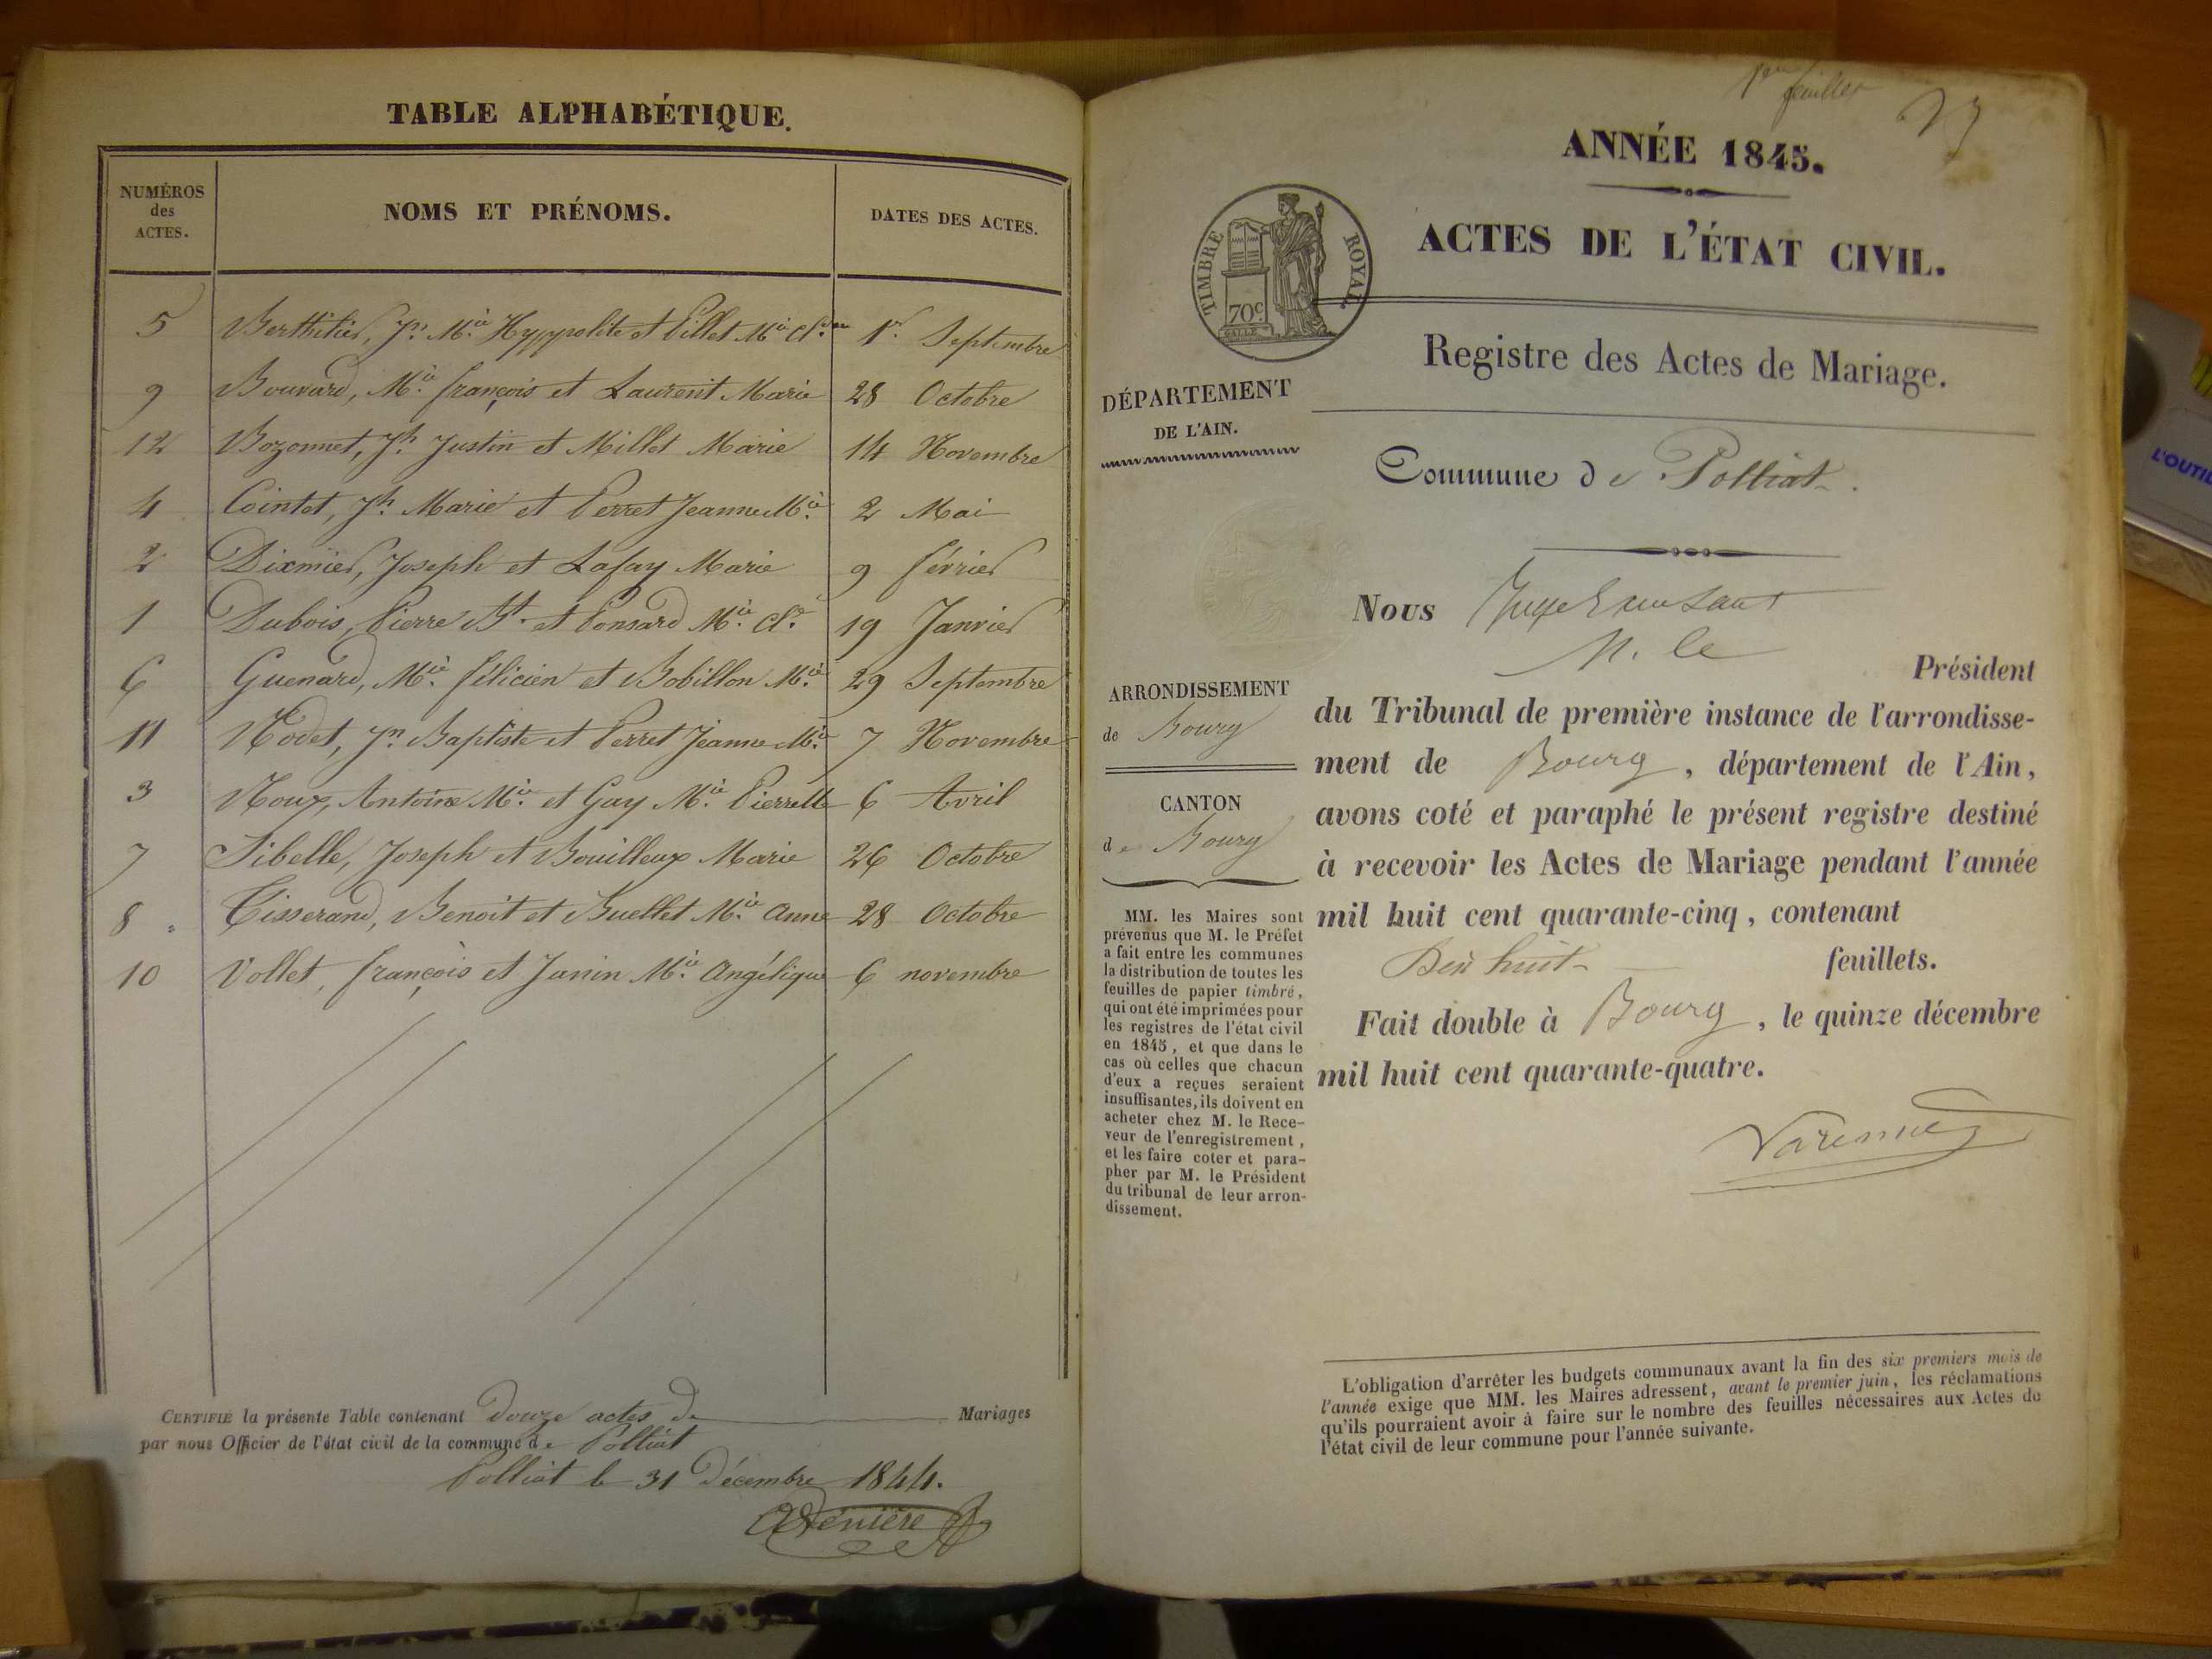 TABLE ALPHABÉTIQUE.
NUMÉROS des ACTES. NOMS ET PRÉNOMS. DATES DES ACTES.
5 Berthilier, Jn. Mie. Hyppolite et Pillet Mie Cl. 1er. Septembre
9 Bouvard, Mie. françois et Laurent Marie 28 Octobre
12 Bozonnet, Jh. Justin et Millet Marie 14 Novembre
4 Cointet, Jh. Marie et Perret Jeanne Mie. 2 Mai
2 Dixmier, Joseph et Lafay Marie 9 février
1 Dubois, Pierre Bt. et Ponsard Mie. Cl. 19 Janvier
6 Guenard, Mie. félicien et Bobillon Mie. 29 Septembre
11 Rodet, Jn. Baptiste et Perret Jeanne Mie. 7 Novembre
3 Roux, Antoine Mie. et Gay Mie. Pierrette 6 Avril
7 Sibelle, Joseph et Bouilloux Marie 26 Octobre
8 Tisserand, Benoit et Buellet Mie. Anne 28 Octobre
10 Vollet, françois et Janin Mie. Angélique 6 novembre
CERTIFIÉ la présente Table contenant douze actes de Mariages
par nous Officier de l'état civil de la commune de Polliat
Polliat le 31 Décembre 1844.
1er feuillet
ANNÉE 1845.
ACTES DE L'ÉTAT CIVIL.
TIMBRE ROYAL
70c
Registre des Actes de Mariage.
DÉPARTEMENT
DE L'AIN.
Commune de Polliat.
Nous Juge
M. le
Président
ARRONDISSEMENT
de Bourg
CANTON
de Bourg
MM. les Maires sont
prévenus que M. le Préfet
a fait entre les communes
la distribution de toutes les
feuilles de papier timbré,
qui ont été imprimées pour
les registres de l'état civil
en 1845, et que dans le
cas où celles que chacun
d'eux a reçues seraient
insuffisantes, ils doivent en
acheter chez M. le Rece-
veur de l'enregistrement,
et les faire coter et para-
pher par M. le Président
du tribunal de leur arron-
dissement.
du Tribunal de première instance de l'arrondisse-
ment de Bourg, département de l'Ain,
avons coté et paraphé le présent registre destiné
à recevoir les Actes de Mariage pendant l'année
mil huit cent quarante-cinq, contenant
Dix huit feuillets.
Fait double à Bourg, le quinze décembre
mil huit cent quarante-quatre.
L'obligation d'arrêter les budgets communaux avant la fin des six premiers mois de
l'année exige que MM. les Maires adressent, avant le premier juin, les réclamations
qu'ils pourraient avoir à faire sur le nombre des feuilles nécessaires aux Actes de
l'état civil de leur commune pour l'année suivante.
L'OUTIL